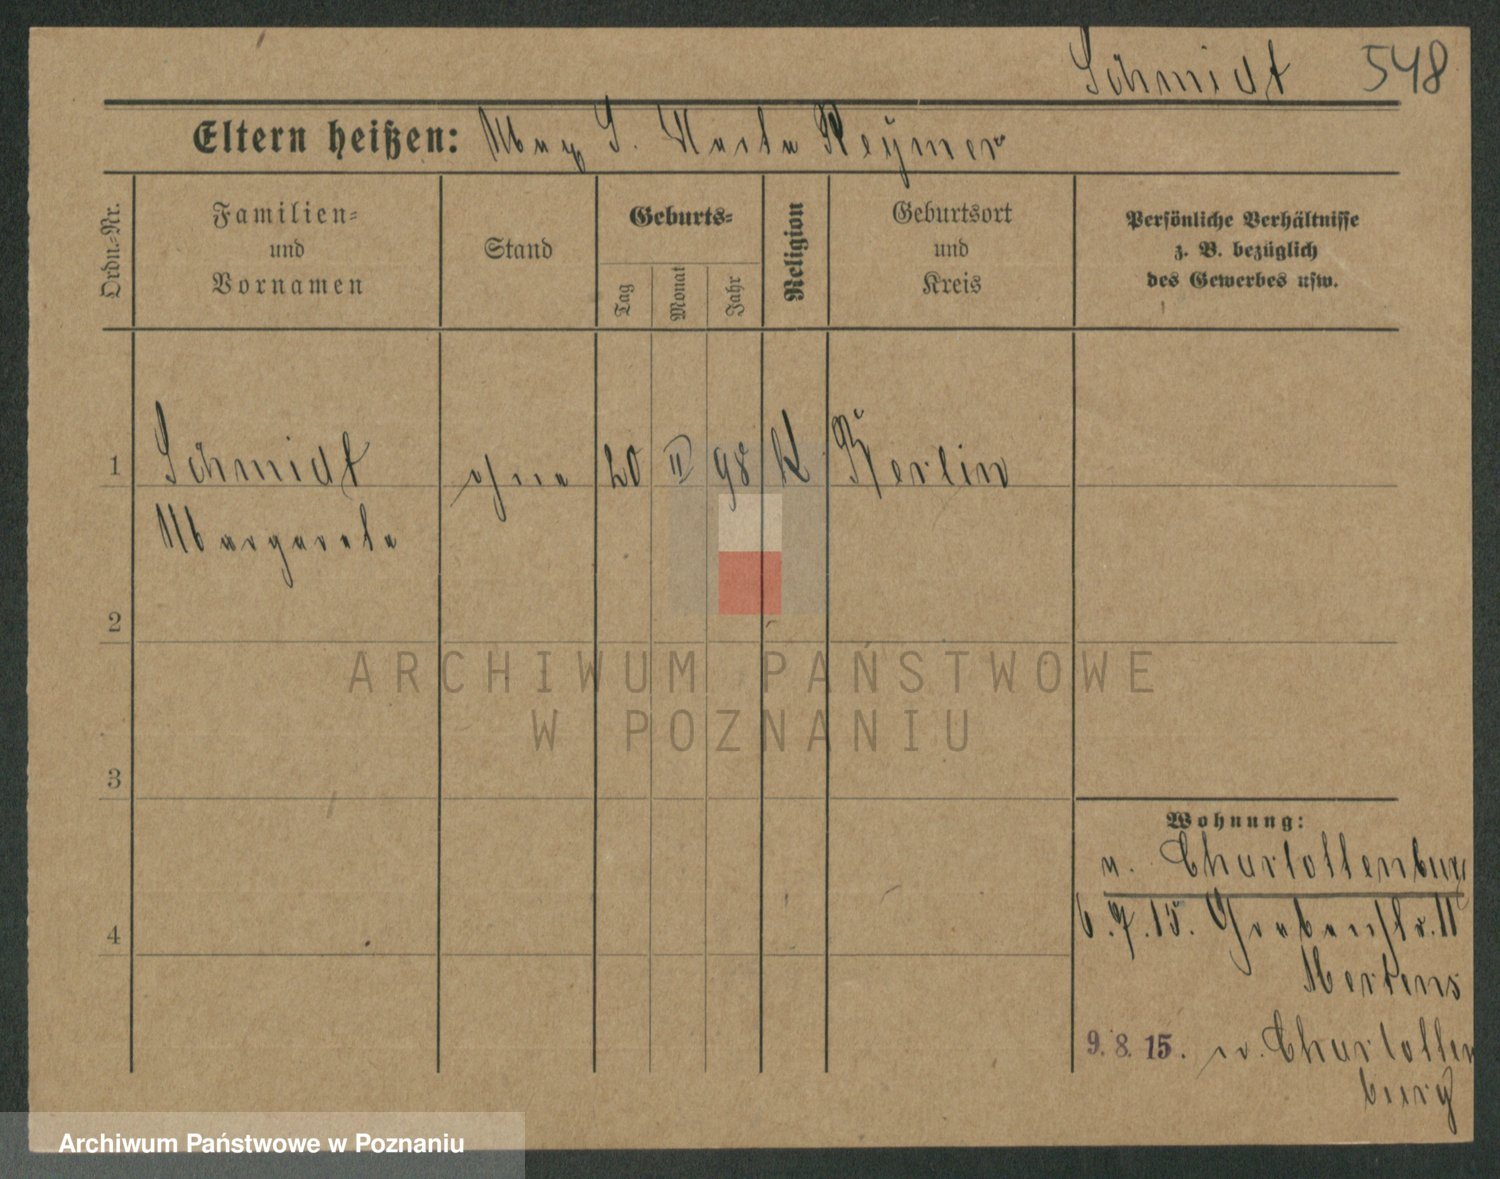 Schmidt 548
Eltern heißen: Max S. Marta Reymer
Ordn.-Nr.
Familien-
und
Vornamen
Stand
Geburts-
Tag
Monat
Jahr
Religion
Geburtsort
und
Kreis
Persönliche Verhältnisse
z. B. bezüglich
des Gewerbes usw.
1 Schmidt ohne 20 II 98 K Berlin
Margarete
2
3
4
Wohnung:
v. Charlottenburg
6.7.15. Grabenstr. 11
Mertens
9.8.15. n. Charlotten
burg
ARCHIWUM PAŃSTWOWE
W POZNANIU
Archiwum Państwowe w Poznaniu